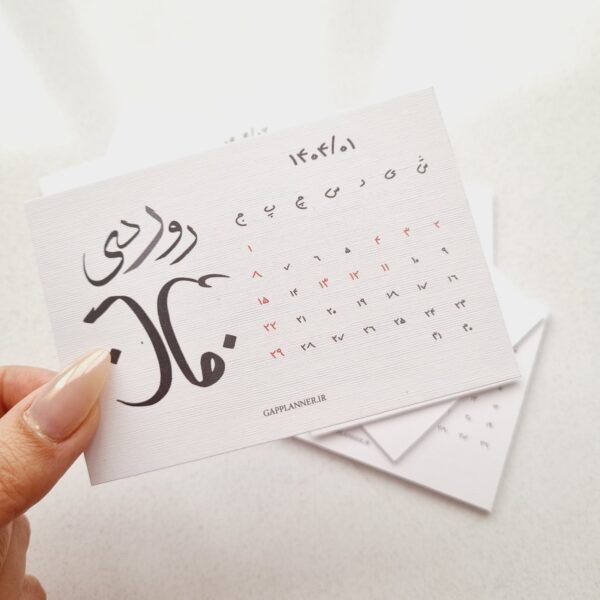 ۱۴۰۴/۰۱
ش ی د س چ پ ج
۱
۲ ۳ ۴ ۵ ۶ ۷ ۸
۹ ۱۰ ۱۱ ۱۲ ۱۳ ۱۴ ۱۵
۱۶ ۱۷ ۱۸ ۱۹ ۲۰ ۲۱ ۲۲
۲۳ ۲۴ ۲۵ ۲۶ ۲۷ ۲۸ ۲۹
۳۰ ۳۱
GAPPLANNER.IR